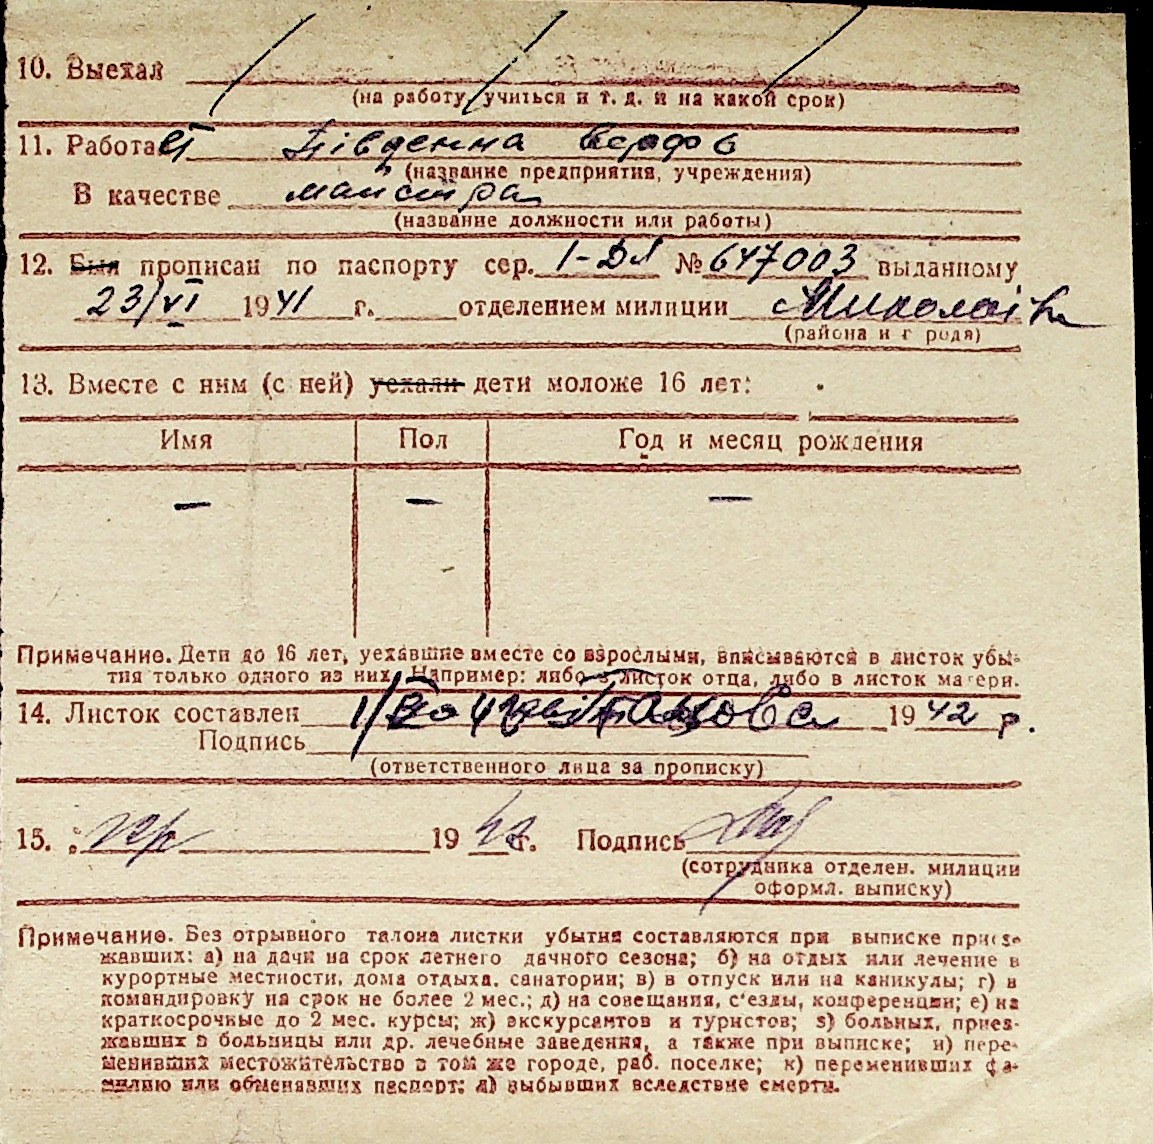 10. Выехал
(на работу, учиться и т. д. и на какой срок)
11. Работает Південна верфь
(название предприятия, учреждения)
В качестве майстра
(название должности или работы)
12. Был прописан по паспорту сер. 1-ДЛ № 647003 выданному
23/VI 1941 г. отделением милиции Миколаїв
(района и города)
13. Вместе с ним (с ней) уехали дети моложе 16 лет:
Имя Пол Год и месяц рождения
— — —
Примечание. Дети до 16 лет, уехавшие вместе со взрослыми, вписываются в листок убы-
тия только одного из них. Например: либо в листок отца, либо в листок матери.
14. Листок составлен 1942 р.
Подпись
(ответственного лица за прописку)
15. 1942 г. Подпись
(сотрудника отделен. милиции
оформл. выписку)
Примечание. Без отрывного талона листки убытия составляются при выписке приез-
жавших: а) на дачи на срок летнего дачного сезона; б) на отдых или лечение в
курортные местности, дома отдыха, санатории; в) в отпуск или на каникулы; г) в
командировку на срок не более 2 мес.; д) на совещания, с'езды, конференции; е) на
краткосрочные до 2 мес. курсы; ж) экскурсантов и туристов; з) больных, приез-
жавших в больницы или др. лечебные заведения, а также при выписке; и) пере-
менивших местожительство в том же городе, раб. поселке; к) переменивших фа-
милию или обменявших паспорт; л) выбывших вследствие смерти.